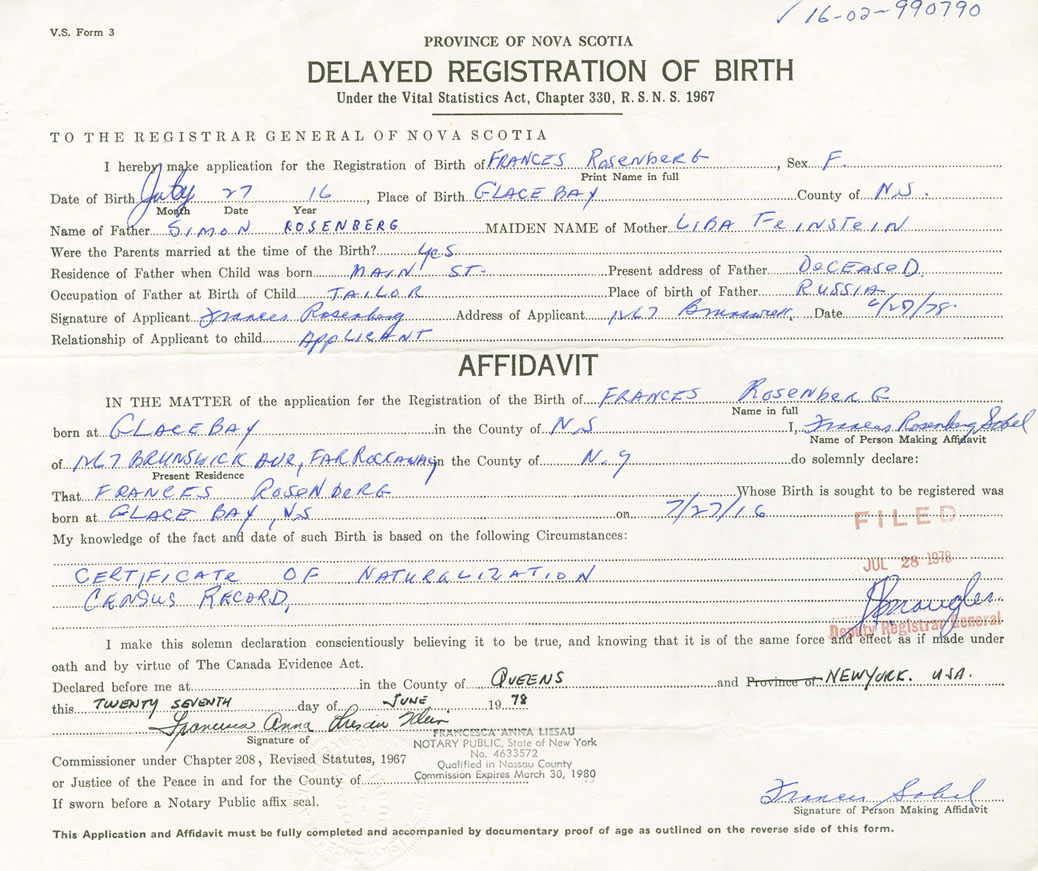 V.S. Form 3
✓ 16-02-990790
PROVINCE OF NOVA SCOTIA
DELAYED REGISTRATION OF BIRTH
Under the Vital Statistics Act, Chapter 330, R. S. N. S. 1967
TO THE REGISTRAR GENERAL OF NOVA SCOTIA
I hereby make application for the Registration of Birth of FRANCES ROSENBERG, Sex F.
Print Name in full
Date of Birth July 27 16, Place of Birth GLACE BAY County of N.S.
Month Date Year
Name of Father SIMON ROSENBERG MAIDEN NAME of Mother LIBA FEINSTEIN
Were the Parents married at the time of the Birth? YES
Residence of Father when Child was born MAIN ST. Present address of Father DECEASED
Occupation of Father at Birth of Child TAILOR Place of birth of Father RUSSIA
Signature of Applicant Frances Rosenberg Address of Applicant Brunswick Date 6/27/78
Relationship of Applicant to child APPLICANT
AFFIDAVIT
IN THE MATTER of the application for the Registration of the Birth of FRANCES ROSENBERG
Name in full
born at GLACE BAY in the County of N.S I, Frances Rosenberg Sobel
Name of Person Making Affidavit
of BRUNSWICK AVE, FAR ROCKAWAY in the County of N.Y do solemnly declare:
Present Residence
That FRANCES ROSENBERG Whose Birth is sought to be registered was
born at GLACE BAY, N.S on 7/27/16
FILED
My knowledge of the fact and date of such Birth is based on the following Circumstances:
JUL 28 1978
CERTIFICATE OF NATURALIZATION
CENSUS RECORD,
Deputy Registrar General
I make this solemn declaration conscientiously believing it to be true, and knowing that it is of the same force and effect as if made under
oath and by virtue of The Canada Evidence Act.
Declared before me at in the County of QUEENS and Province of NEW YORK. USA.
this TWENTY SEVENTH day of JUNE 19 78
Francesca Anna Liesau
Signature of
FRANCESCA ANNA LIESAU
NOTARY PUBLIC, State of New York
No. 4633572
Qualified in Nassau County
Commission Expires March 30, 1980
Commissioner under Chapter 208, Revised Statutes, 1967
or Justice of the Peace in and for the County of
If sworn before a Notary Public affix seal.
Frances Sobel
Signature of Person Making Affidavit
This Application and Affidavit must be fully completed and accompanied by documentary proof of age as outlined on the reverse side of this form.